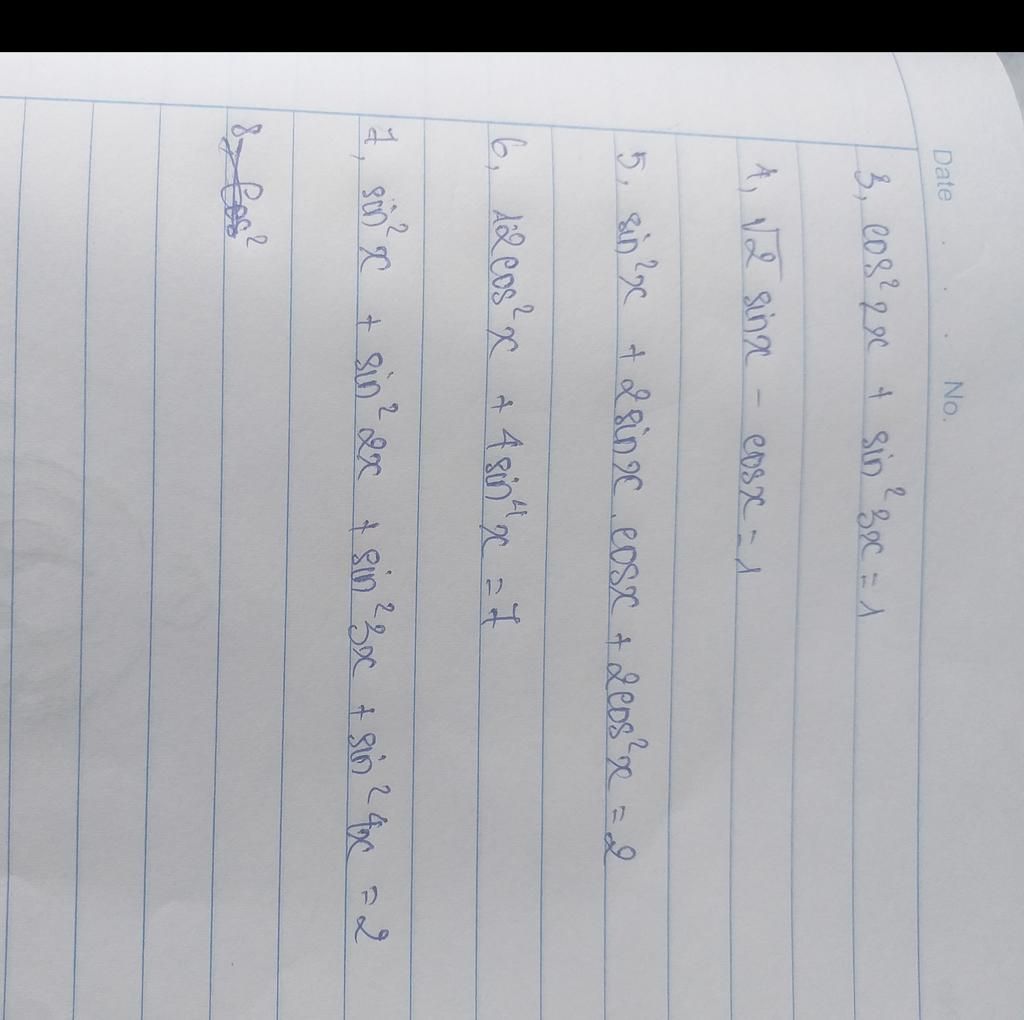 Date No.
3, cos² 2x + sin² 3x = 1
4, √2 sinx - cosx = 1
5, sin²x + 2sinx.cosx + 2cos²x = 2
6, 12cos²x + 4sin⁴x = 7
7, sin²x + sin² 2x + sin² 3x + sin² 4x = 2
8, cos²